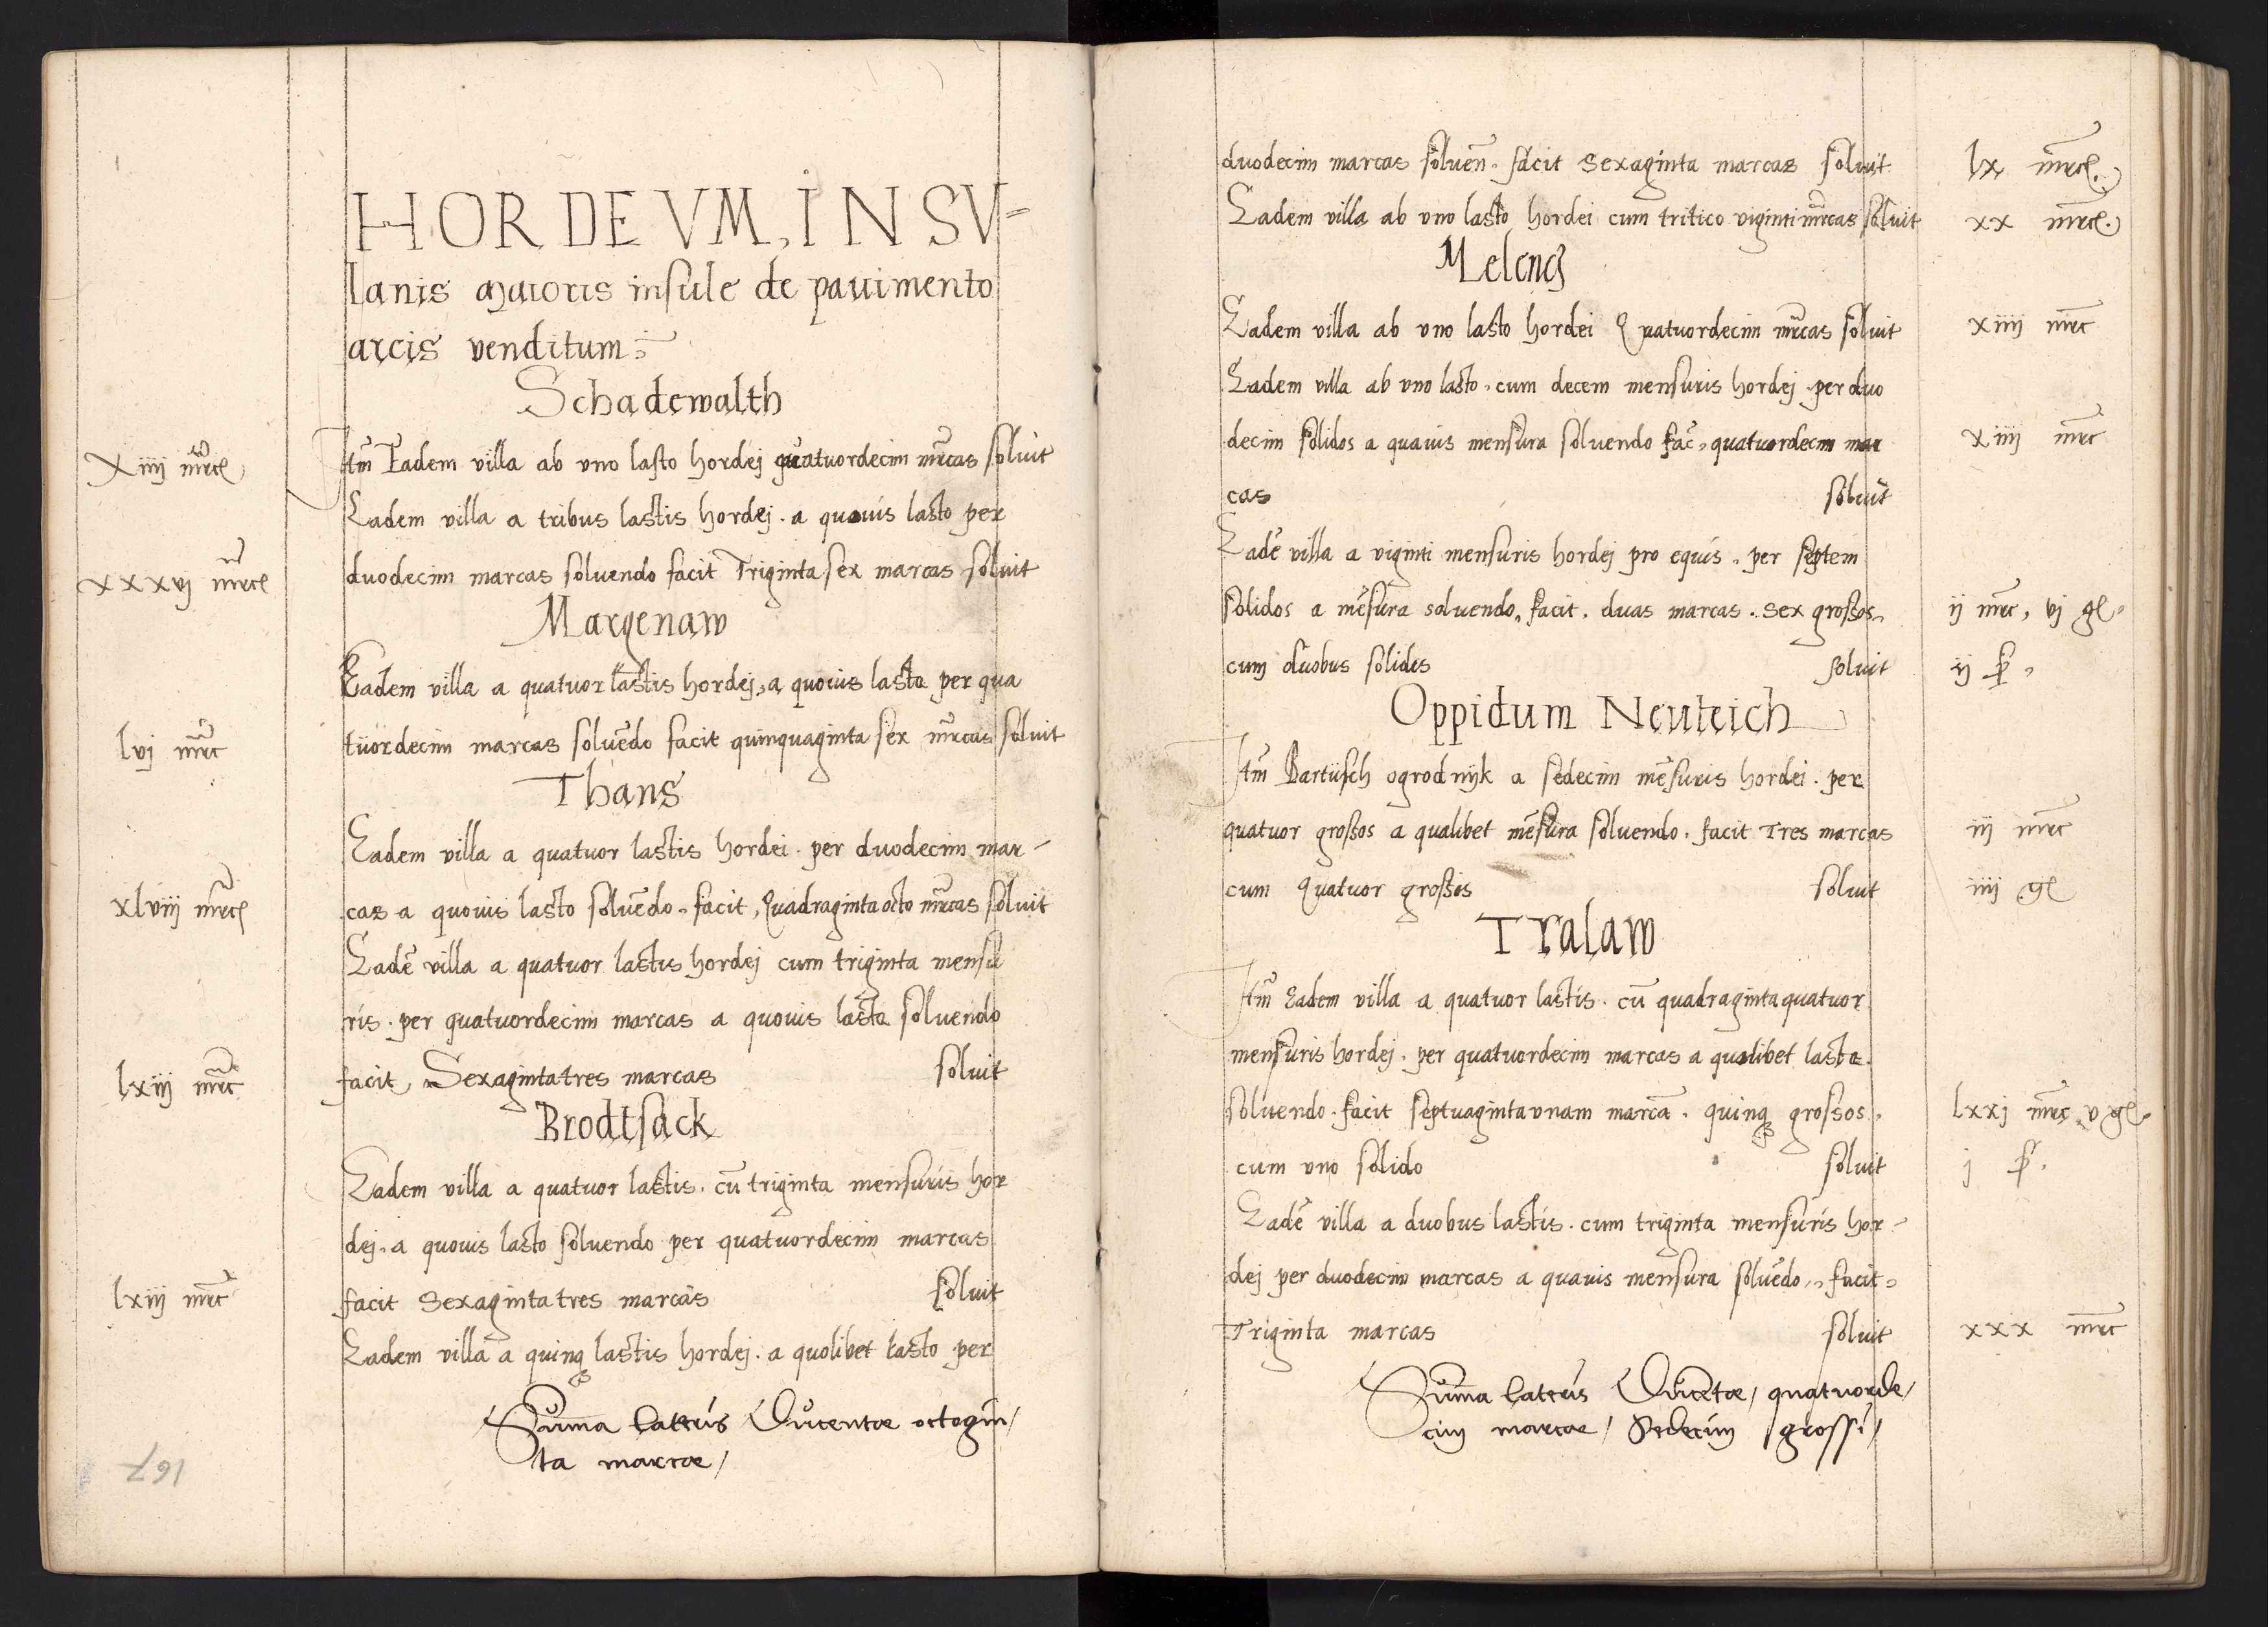 HORDEVM, IN SV-
lanis maioris insule de pauimento
arcis venditum
Schadewalth
Xiiij mrc Itm Eadem villa ab vno lasto hordej quatuordecim mrcas soluit
Eadem villa a tribus lastis hordej. a quouis lasto per
xxxvj mrc duodecim marcas soluendo facit Triginta sex marcas soluit
Margenaw
Eadem villa a quatuor lastis hordej, a quouis lasto per qua
lvj mrc tuordecim marcas soluēdo facit quinquaginta sex mrcas soluit
Thans
Eadem villa a quatuor lastis hordei. per duodecim mar-
xlviij mrc cas a quouis lasto soluēdo. facit, Quadraginta octo mrcas soluit
Eadē villa a quatuor lastis hordej cum triginta mensu
ris. per quatuordecim marcas a quouis lasto soluendo
lxiij mrc facit, Sexagintatres marcas soluit
Brodtsack
Eadem villa a quatuor lastis. cū triginta mensuris hor
dej. a quouis lasto soluendo per quatuordecim marcas
lxiij mrc facit Sexagintatres marcas soluit
Eadem villa a quinq lastis hordej. a quolibet lasto per
Summa lateris Ducentae octogin/
ta marcae/
167
duodecim marcas soluen. facit sexaginta marcas soluit lx mrc.
Eadem villa ab vno lasto hordei cum tritico viginti mrcas soluit xx mrc.
Meleng
Eadem villa ab vno lasto hordei Quatuordecim mrcas soluit xiiij mrc
Eadem villa ab vno lasto. cum decem mensuris hordej. per duo
decim solidos a quauis mensura soluendo fac, quatuordecim mar xiiij mrc
cas soluit
Eadē villa a viginti mensuris hordej pro equis. per septem
solidos a mēsura soluendo, facit. duas marcas. sex grossos, ij mrc, vj gl.
cum duobus solidis soluit ij ß.
Oppidum Neuteich
Itm Bartusch ogrodnijk a sedecim mēsuris hordei. per
quatuor grossos a qualibet mēsura soluendo. facit Tres marcas iij mrc
cum Quatuor grossis soluit iiij gl
Tralaw
Itm Eadem villa a quatuor lastis. cū quadragintaquatuor
mensuris hordej. per quatuordecim marcas a qualibet lasta.
soluendo. facit septuagintavnam marcā. quinq grossos. lxxj mrc, v gl.
cum vno solido soluit j ß.
Eadē villa a duobus lastis. cum triginta mensuris hor-
dej per duodecim marcas a quauis mensura soluēdo, facit-
Triginta marcas soluit xxx mrc
Summa lateris Ducētae/ quatuorde/
cim marcae/ Sedecim grossi/